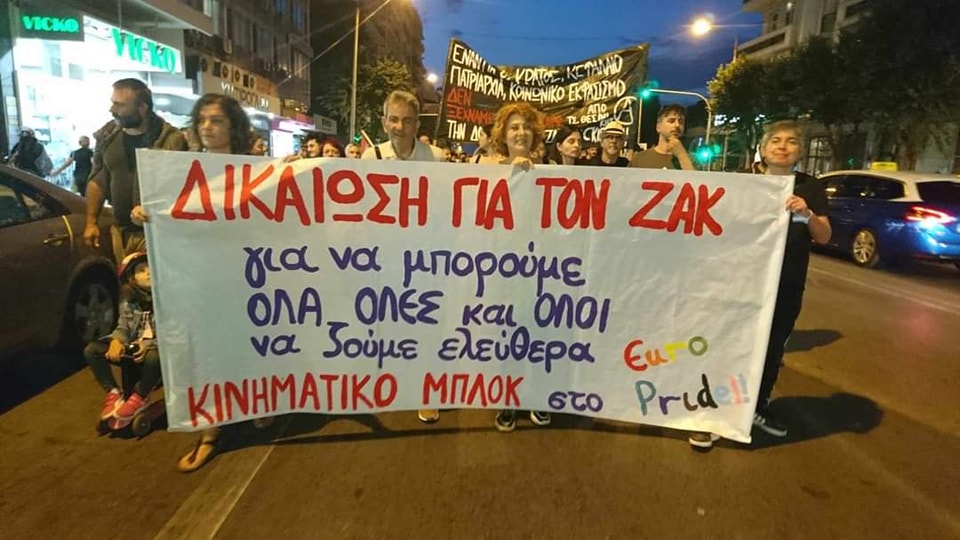 VICKO
VICKO
ΕΝΑΝΤΙΑ ΣΕ ΚΡΑΤΟΣ, ΚΕΦΑΛΑΙΟ
ΠΑΤΡΙΑΡΧΙΑ, ΚΟΙΝΩΝΙΚΟ ΕΚΦΑΣΙΣΜΟ
ΔΕΝ
ΞΕΧΝΑΜΕ
ΤΗΝ
ΔΙΚΑΙΩΣΗ ΓΙΑ ΤΟΝ ΖΑΚ
για να μπορούμε
ΟΛΑ ΟΛΕΣ και ΟΛΟΙ
να ζούμε ελεύθερα
ΚΙΝΗΜΑΤΙΚΟ ΜΠΛΟΚ στο Euro Pride!!